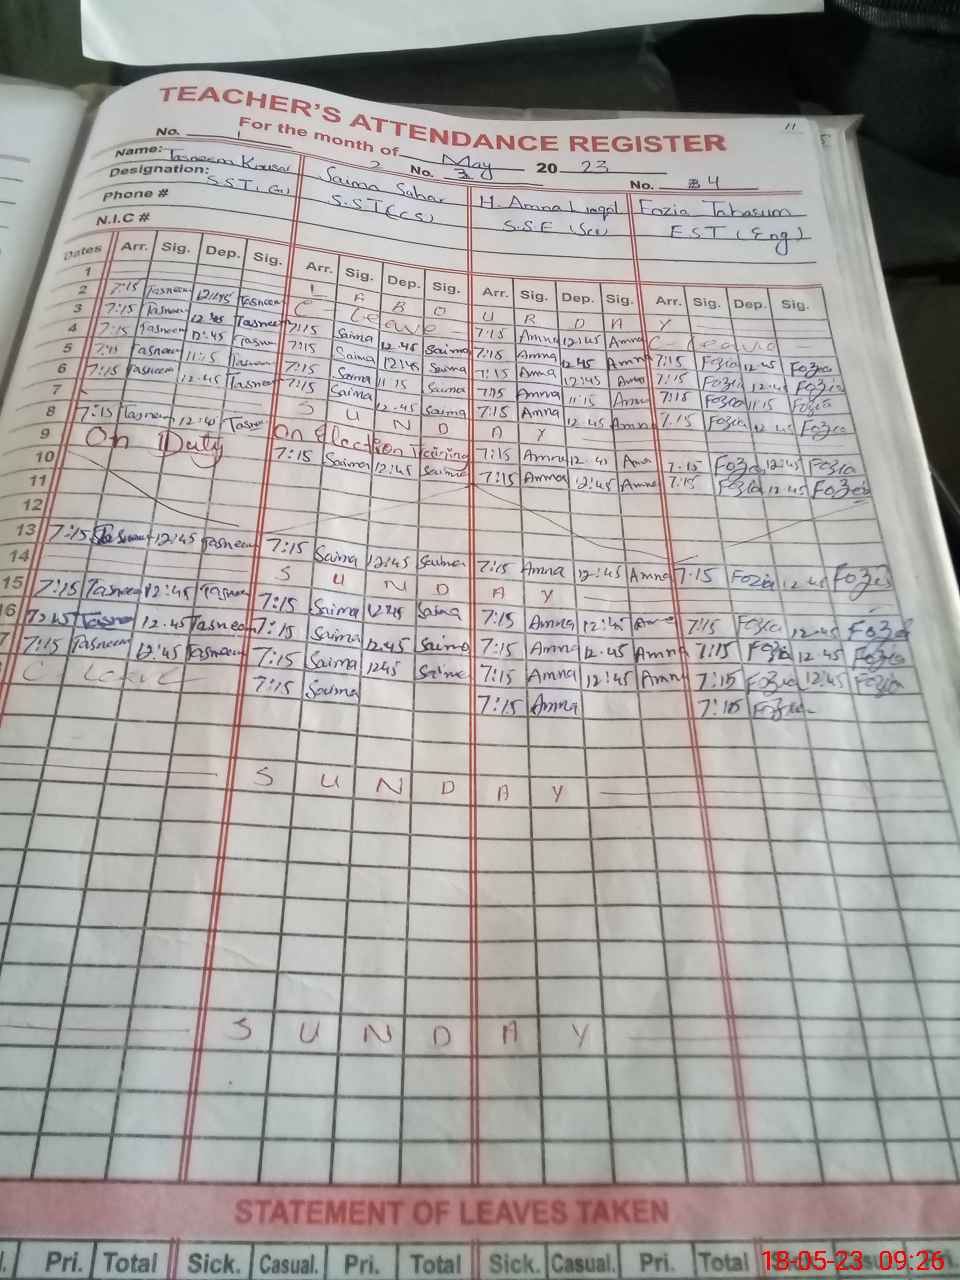 11
TEACHER'S ATTENDANCE REGISTER
For the month of May 2023
No. 1 2 No. 3 No. 4
Name: Tasneem Kousar Saima Sahar H. Amna Fozia Tabasum
Designation: SST. (G) S.ST (CS) S.S.E (Sci) E S T (Eng)
Phone #
N.I.C #
Dates Arr. Sig. Dep. Sig. Arr. Sig. Dep. Sig. Arr. Sig. Dep. Sig. Arr. Sig. Dep. Sig.
1 L A B O U R D A Y
2 7:15 Tasneem 12:45 Tasneem C- Leave 7:15 Amna 12:45 Amna C- Leave
3 7:15 Tasneem 12:45 Tasneem 7:15 Saima 12:45 Saima 7:15 Amna 12:45 Amna 7:15 Fozia 12:45 Fozia
4 7:15 Tasneem 12:45 Tasneem 7:15 Saima 12:45 Saima 7:15 Amna 12:45 Amna 7:15 Fozia 12:45 Fozia
5 7:15 Tasneem 11:15 Tasneem 7:15 Saima 11:15 Saima 7:15 Amna 11:15 Amna 7:15 Fozia 11:15 Fozia
6 7:15 Tasneem 12:45 Tasneem 7:15 Saima 12:45 Saima 7:15 Amna 12:45 Amna 7:15 Fozia 12:45 Fozia
7 S U N D A Y
8 7:15 Tasneem 12:45 Tasneem On Election Training 7:15 Amna 12:45 Amna 7:15 Fozia 12:45 Fozia
9 On Duty 7:15 Saima 12:45 Saima 7:15 Amna 12:45 Amna 7:15 Fozia 12:45 Fozia
10
11
12
13 7:15 Tasneem 12:45 Tasneem 7:15 Saima 12:45 Saima 7:15 Amna 12:45 Amna 7:15 Fozia 12:45 Fozia
14 S U N D A Y
15 7:15 Tasneem 12:45 Tasneem 7:15 Saima 12:45 Saima 7:15 Amna 12:45 Amna 7:15 Fozia 12:45 Fozia
16 Tasneem 12:45 Tasneem 7:15 Saima 12:45 Saima 7:15 Amna 12:45 Amna 7:15 Fozia 12:45 Fozia
7 7:15 Tasneem 12:45 Tasneem 7:15 Saima 12:45 Saima 7:15 Amna 12:45 Amna 7:15 Fozia 12:45 Fozia
C Leave 7:15 Saima 7:15 Amna 7:15 Fozia
S U N D A Y
S U N D A Y
STATEMENT OF LEAVES TAKEN
Pri. Total Sick. Casual. Pri. Total Sick. Casual. Pri. Total
18-05-23 09:26